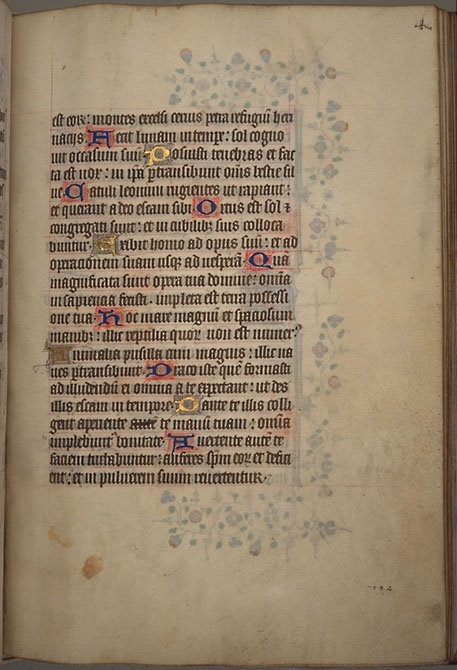 est eoꝝ: montes excelsi ceruis petra refugiū heri
nacijs. Fecit lunam in tempr̄: sol cogno
uit occasum suū Posuisti tenebras et fac
ta est nox: in ip̄a ꝑtransibunt om̄s bestie sil
ue Catuli leonum rugientes ut rapiant:
et querant a deo escam sibi. Ortus est sol ⁊
congregati sunt: et in cubilibꝫ suis colloca
buntur. Exibit homo ad opus suū: et ad
operacionem suam usqꝫ ad uesperā. Quā
magnificata sunt opera tua domine: omīa
in sapiencia fecisti. impleta est terra possessi
one tua. Hoc mare magnū et spaciosum
manibꝫ: illic reptilia quoꝝ non est numerꝯ
Animalia pusilla cum magnis: illic na
ues ꝑtransibunt. Draco iste quē formasti
ad illudendū ei omnia a te expectant: ut des
illis escam in tempore. Dante te illis colli
gent aperiente te manū tuam: omīa
implebunt᷑ bonitate. Auertente autē te
faciem turbabuntur: auferes sp̄m eoꝝ et defici
ent: et in puluerem suum reuertentur.